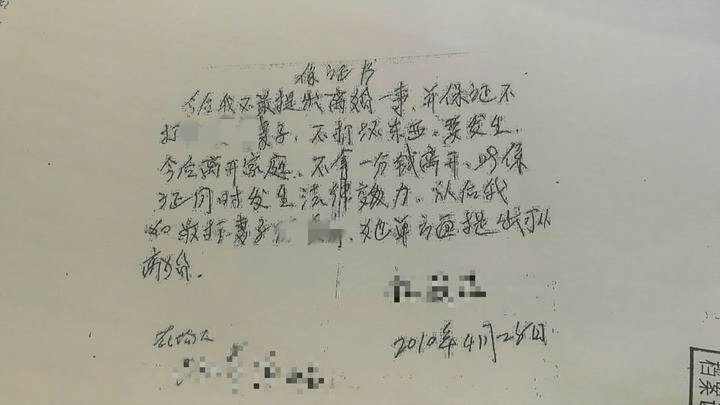 保证书
今后我不敢提出离婚一事,并保证不
打妻子,不打坏东西,要发生
今后离开家庭,不拿一分钱离开,此保
证同时发生法律效力,从后我
如殴打妻子,她单方面提出可以
离婚。
2010年4月25日
档案